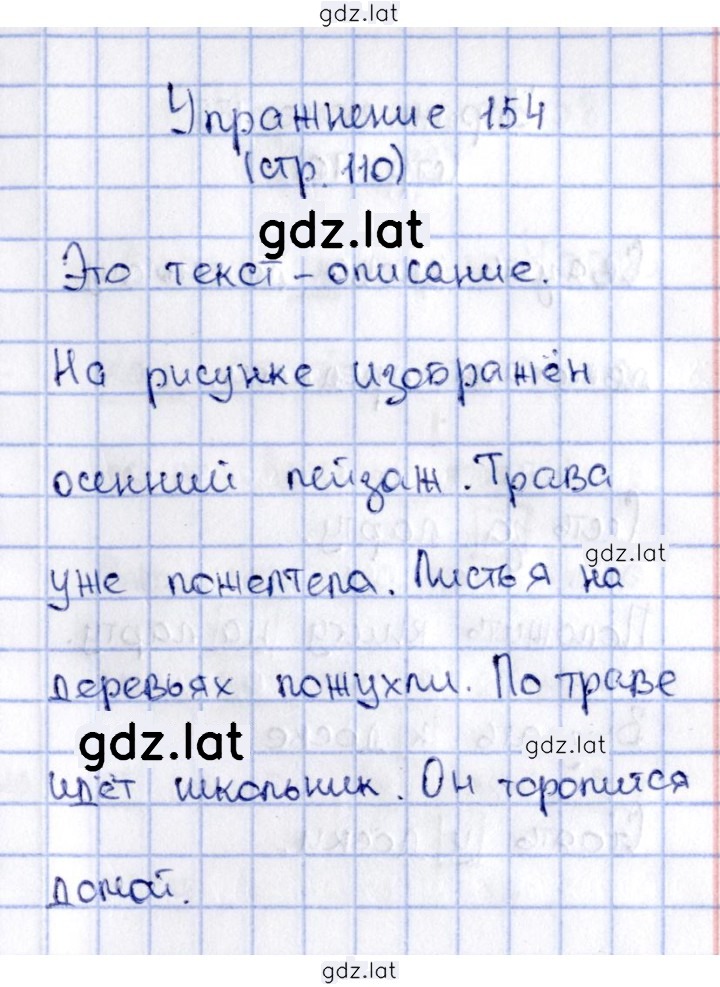 gdz.lat
Упражнение 154
(стр. 110)
gdz.lat
Это текст - описание.
На рисунке изображён
осенний пейзаж. Трава
gdz.lat
уже пожелтела. Листья на
деревьях пожухли. По траве
gdz.lat
gdz.lat
идёт школьник. Он торопится
домой.
gdz.lat